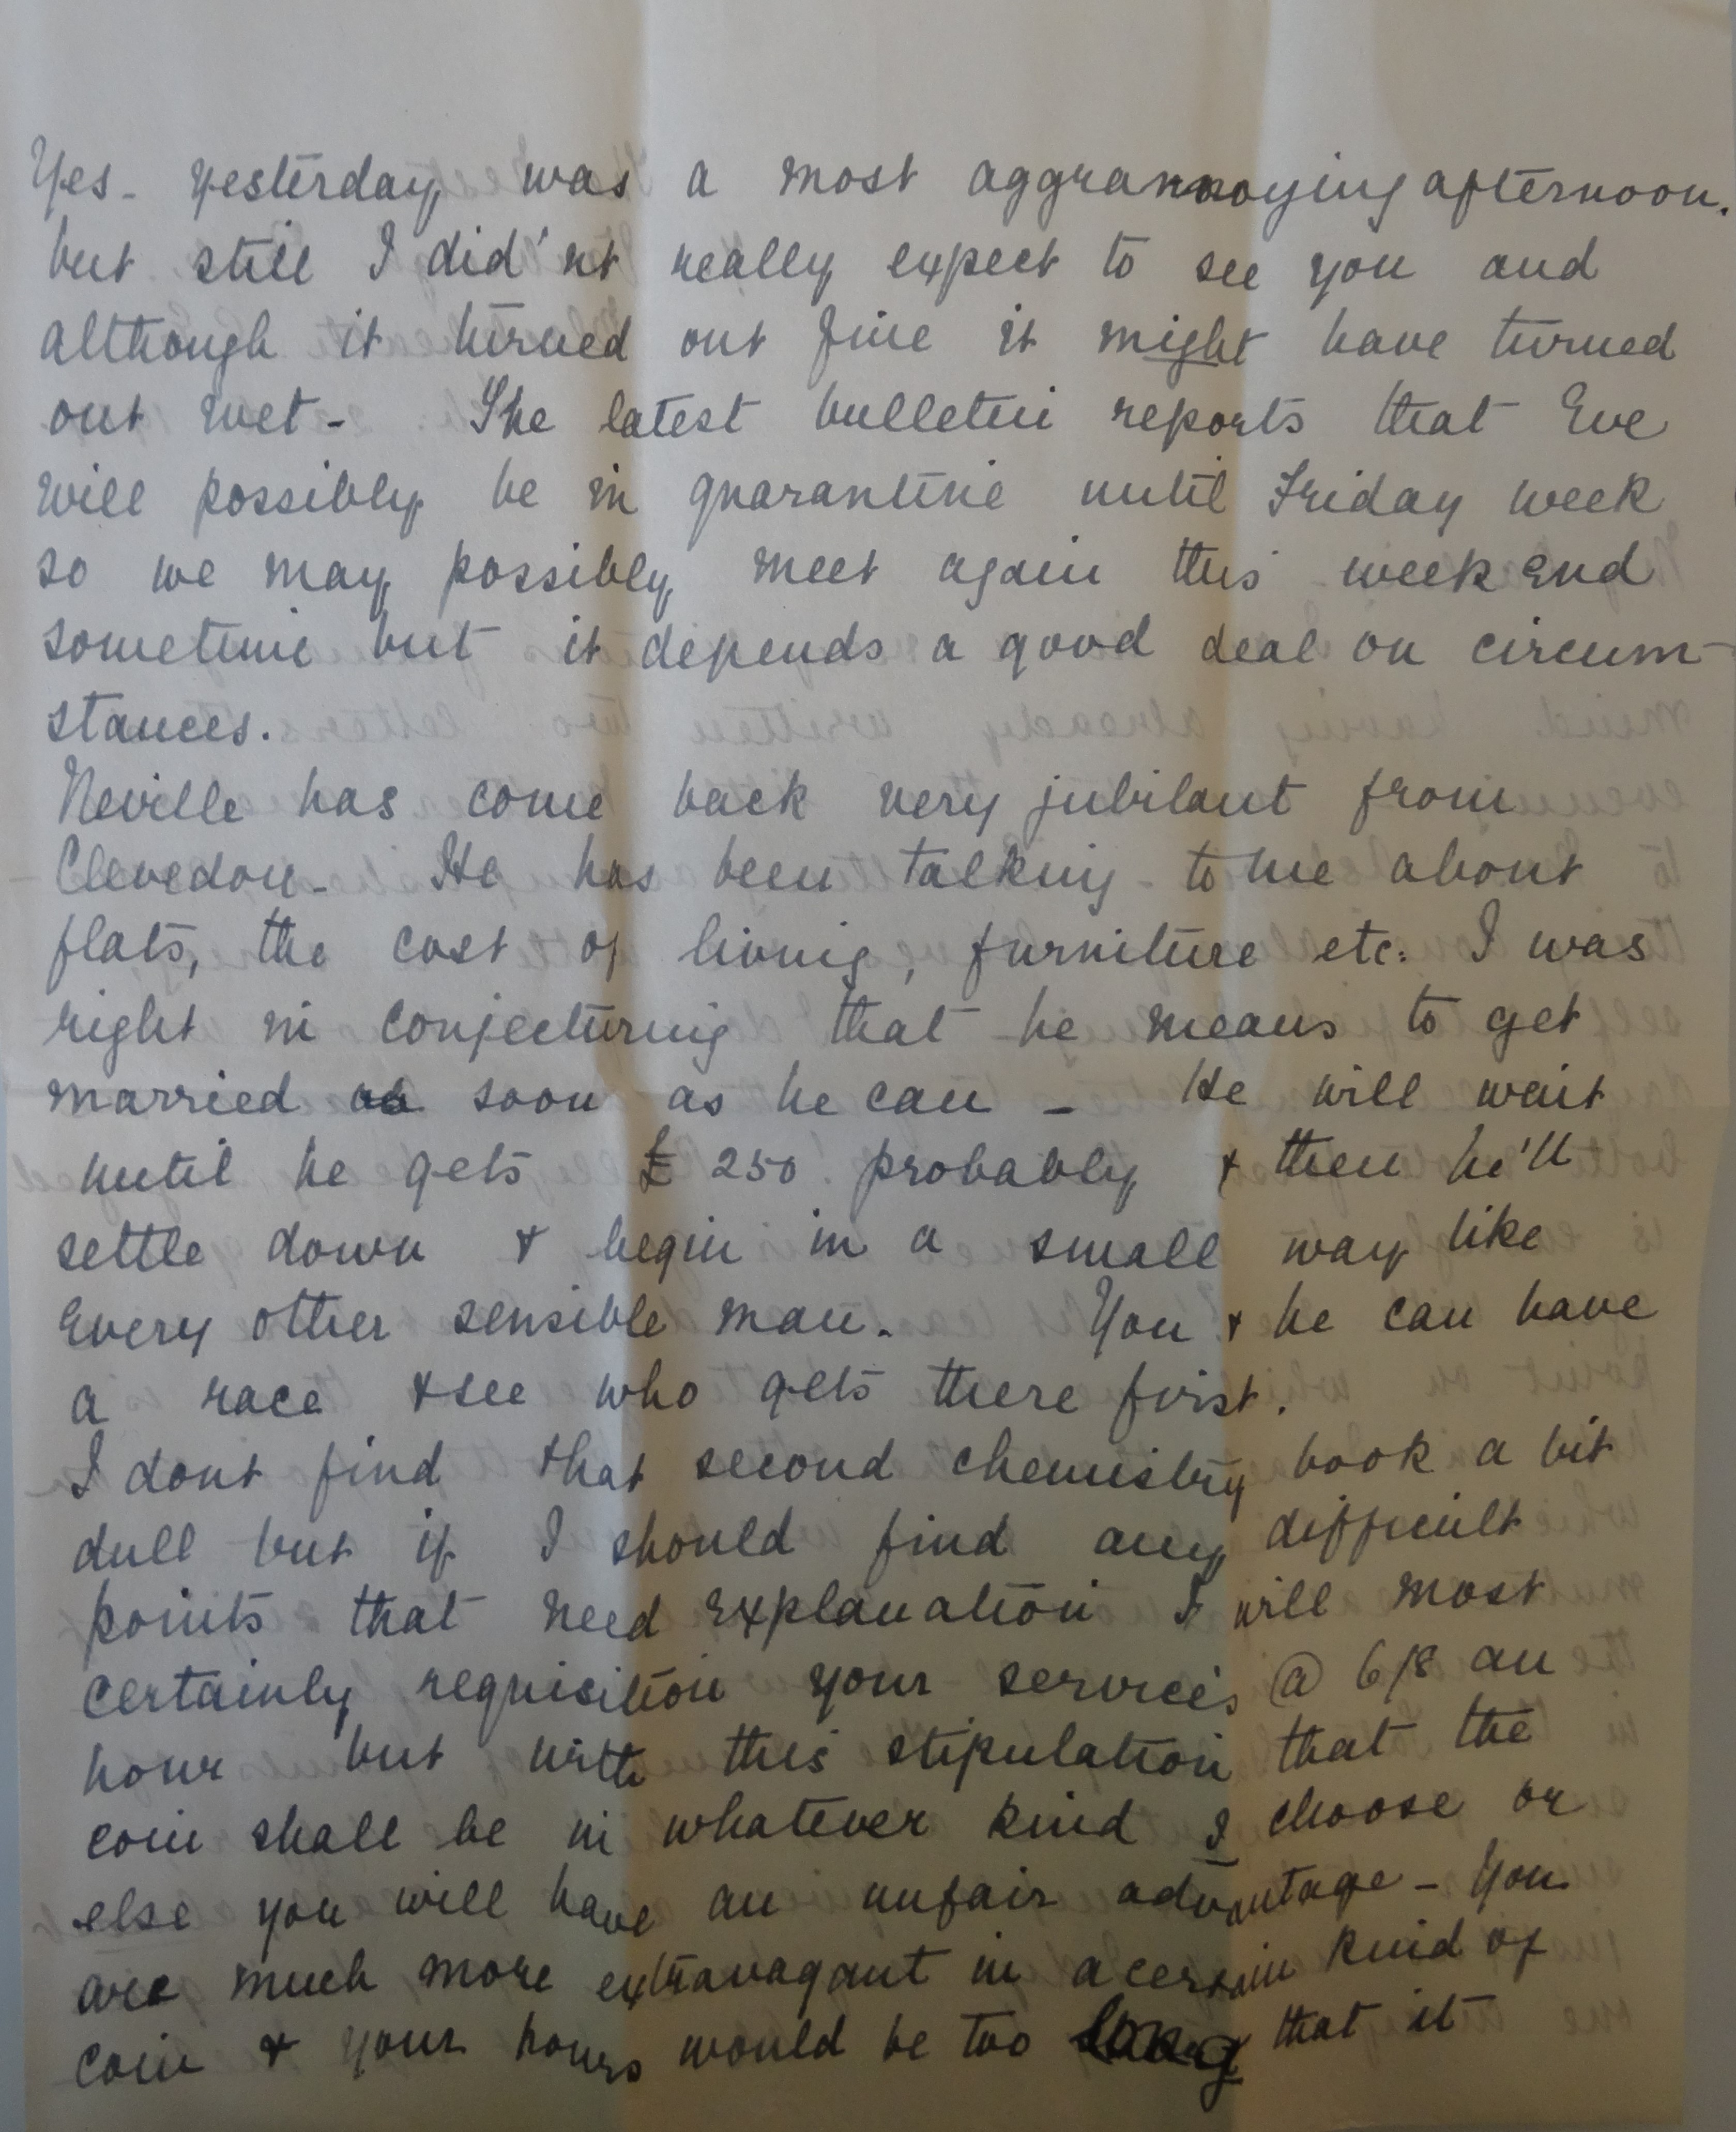 Yes - yesterday was a most aggrannoying afternoon.
but still I did'nt really expect to see you and
although it turned out fine it might have turned
out wet - The latest bulletin reports that Eve
will possibly be in quarantine until Friday week
so we may possibly meet again this week end
sometime but it depends a good deal on circum-
stances.
Neville has come back very jubilant from
Clevedon - He has been talking to me about
flats, the cost of living, furniture etc: I was
right in conjecturing that he means to get
married as soon as he can - He will wait
until he gets £250 probably & then he'll
settle down & begin in a small way like
every other sensible man. You & he can have
a race & see who gets there first.
I dont find that second chemistry book a bit
dull but if I should find any difficult
points that need explanation I will most
certainly requisition your services @ 6/8 an
hour but with this stipulation that the
coin shall be in whatever kind I choose or
else you will have an unfair advantage - You
are much more extravagant in a certain kind of
coin & your hours would be too long that it